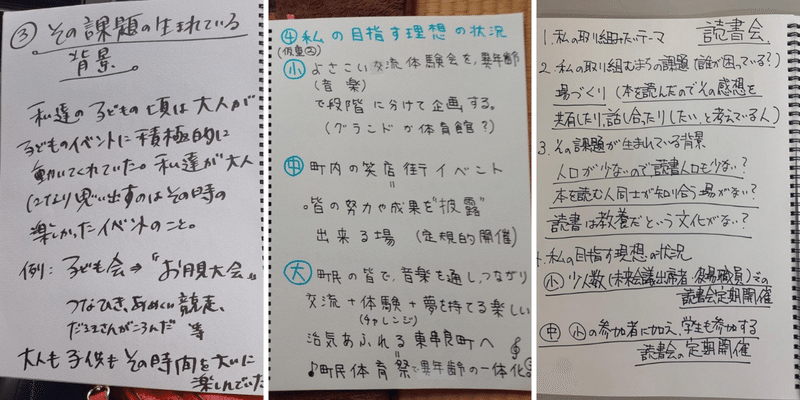 ③ その課題の生まれている
背景
私達の子どもの頃は大人が
子どものイベントに積極的に
動いてくれていた。私達が大人
になり思い出すのはその時の
楽しかったイベントのこと。
例:子ども会⇒『お唄大会』
つなひき、あめくい競走、
だるまさんがころんだ 等
大人も子供もその時間を大いに
楽しんでいた
④私の目指す理想の状況
(仮東②)
小 よさこい交流体験会を、異年齢
(音楽)
で段階に分けて企画する。
(グランドか体育館?)
中 町内の笑店街イベント
=
皆の努力や成果を“披露”
出来る場 (定規的開催)
大 町民の皆で、音楽を通し、つながり
交流+体験+夢を持てる楽しい
(チャレンジ)
活気あふれる東串良町へ
=
♪町民体育祭で異年齢の一体化
1. 私の取り組みたいテーマ 読書会
2. 私の取り組むまちの課題(誰が困っている?)
場づくり(本を読んだのでその感想を
共有したり、話し合ったりしたい、と考えている人)
3. その課題が生まれている背景
人口が少ないので読書人口も少ない?
本を読む人同士が知り合う場がない?
読書は教養だという文化がない?
私の目指す理想の状況
小 少人数(未来会議出席者、役場職員)での
読書会定期開催
中 小の参加者に加え、学生も参加する
読書会の定期開催